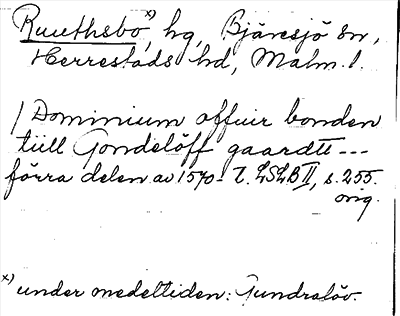 Ruuthsbo x), hg, Bjäresjö sn,
Herrestads hd, Malm. l.
/ Dominium offuir bonden
tiill Gondelöff gaardtt ---
förra delen av 1570-t. LSLB II, s. 255.
orig.
x) under medeltiden: Gundralöv.